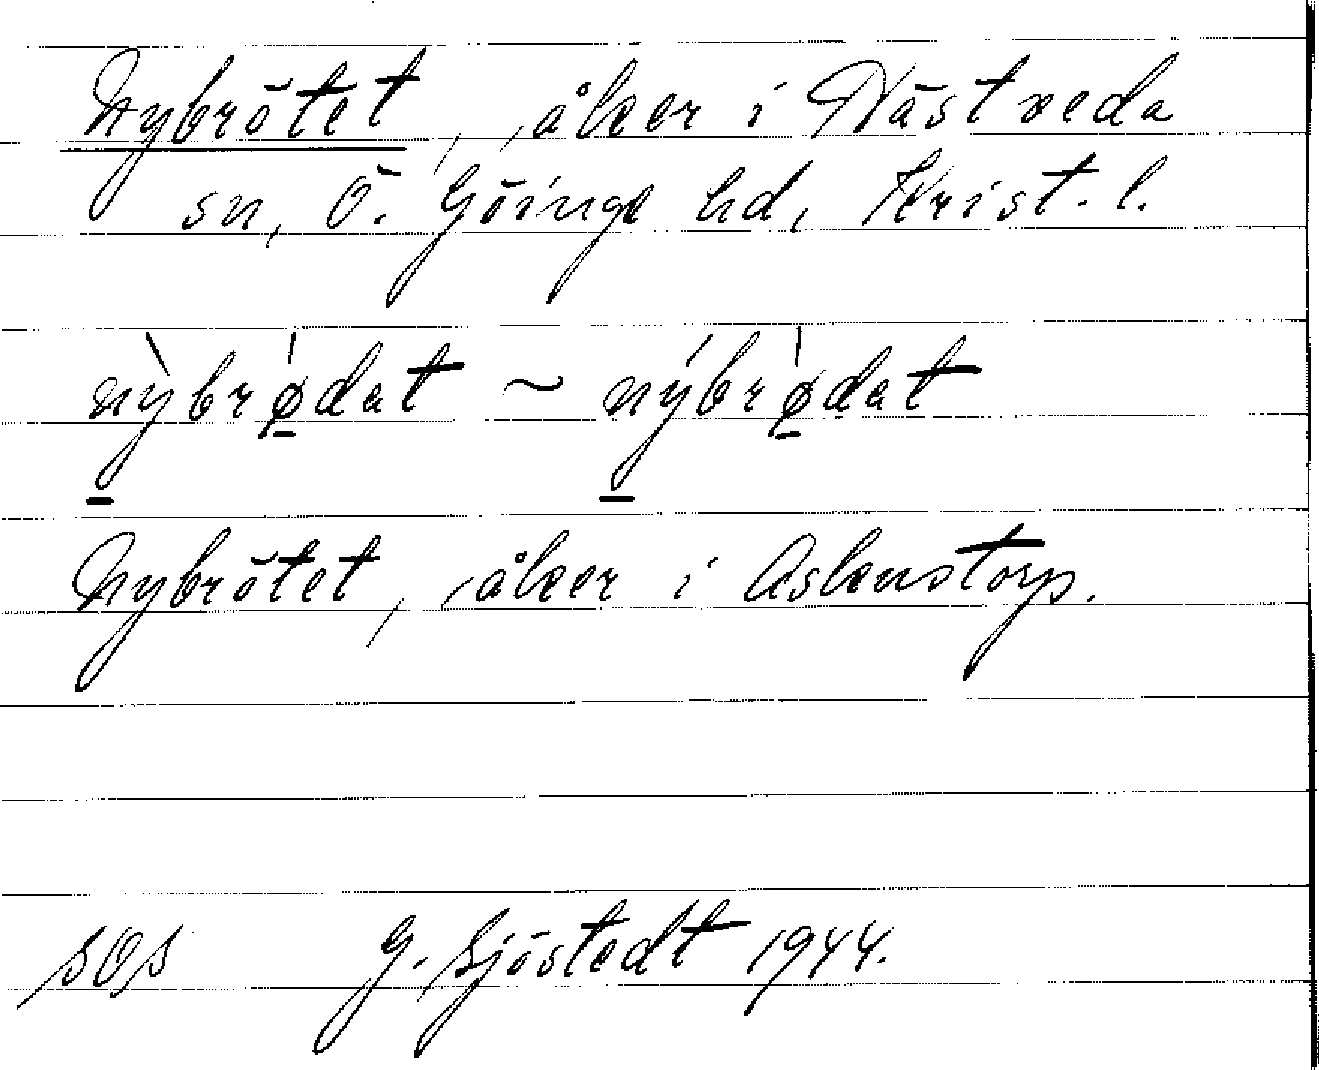 Nybrötet, åker i Nästveda
sn, Ö. Göinge hd, Krist. l.
nỳbrø̀dat ~ nýbrø̀dat
Nybrötet, åker i Askenstorp.
SOS G. Sjöstedt 1944.